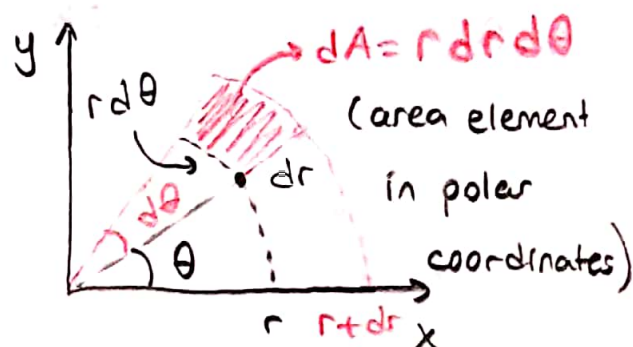 y
dA = r dr dθ
r dθ
(area element
in polar
coordinates)
dr
dθ
θ
r
r+dr
x